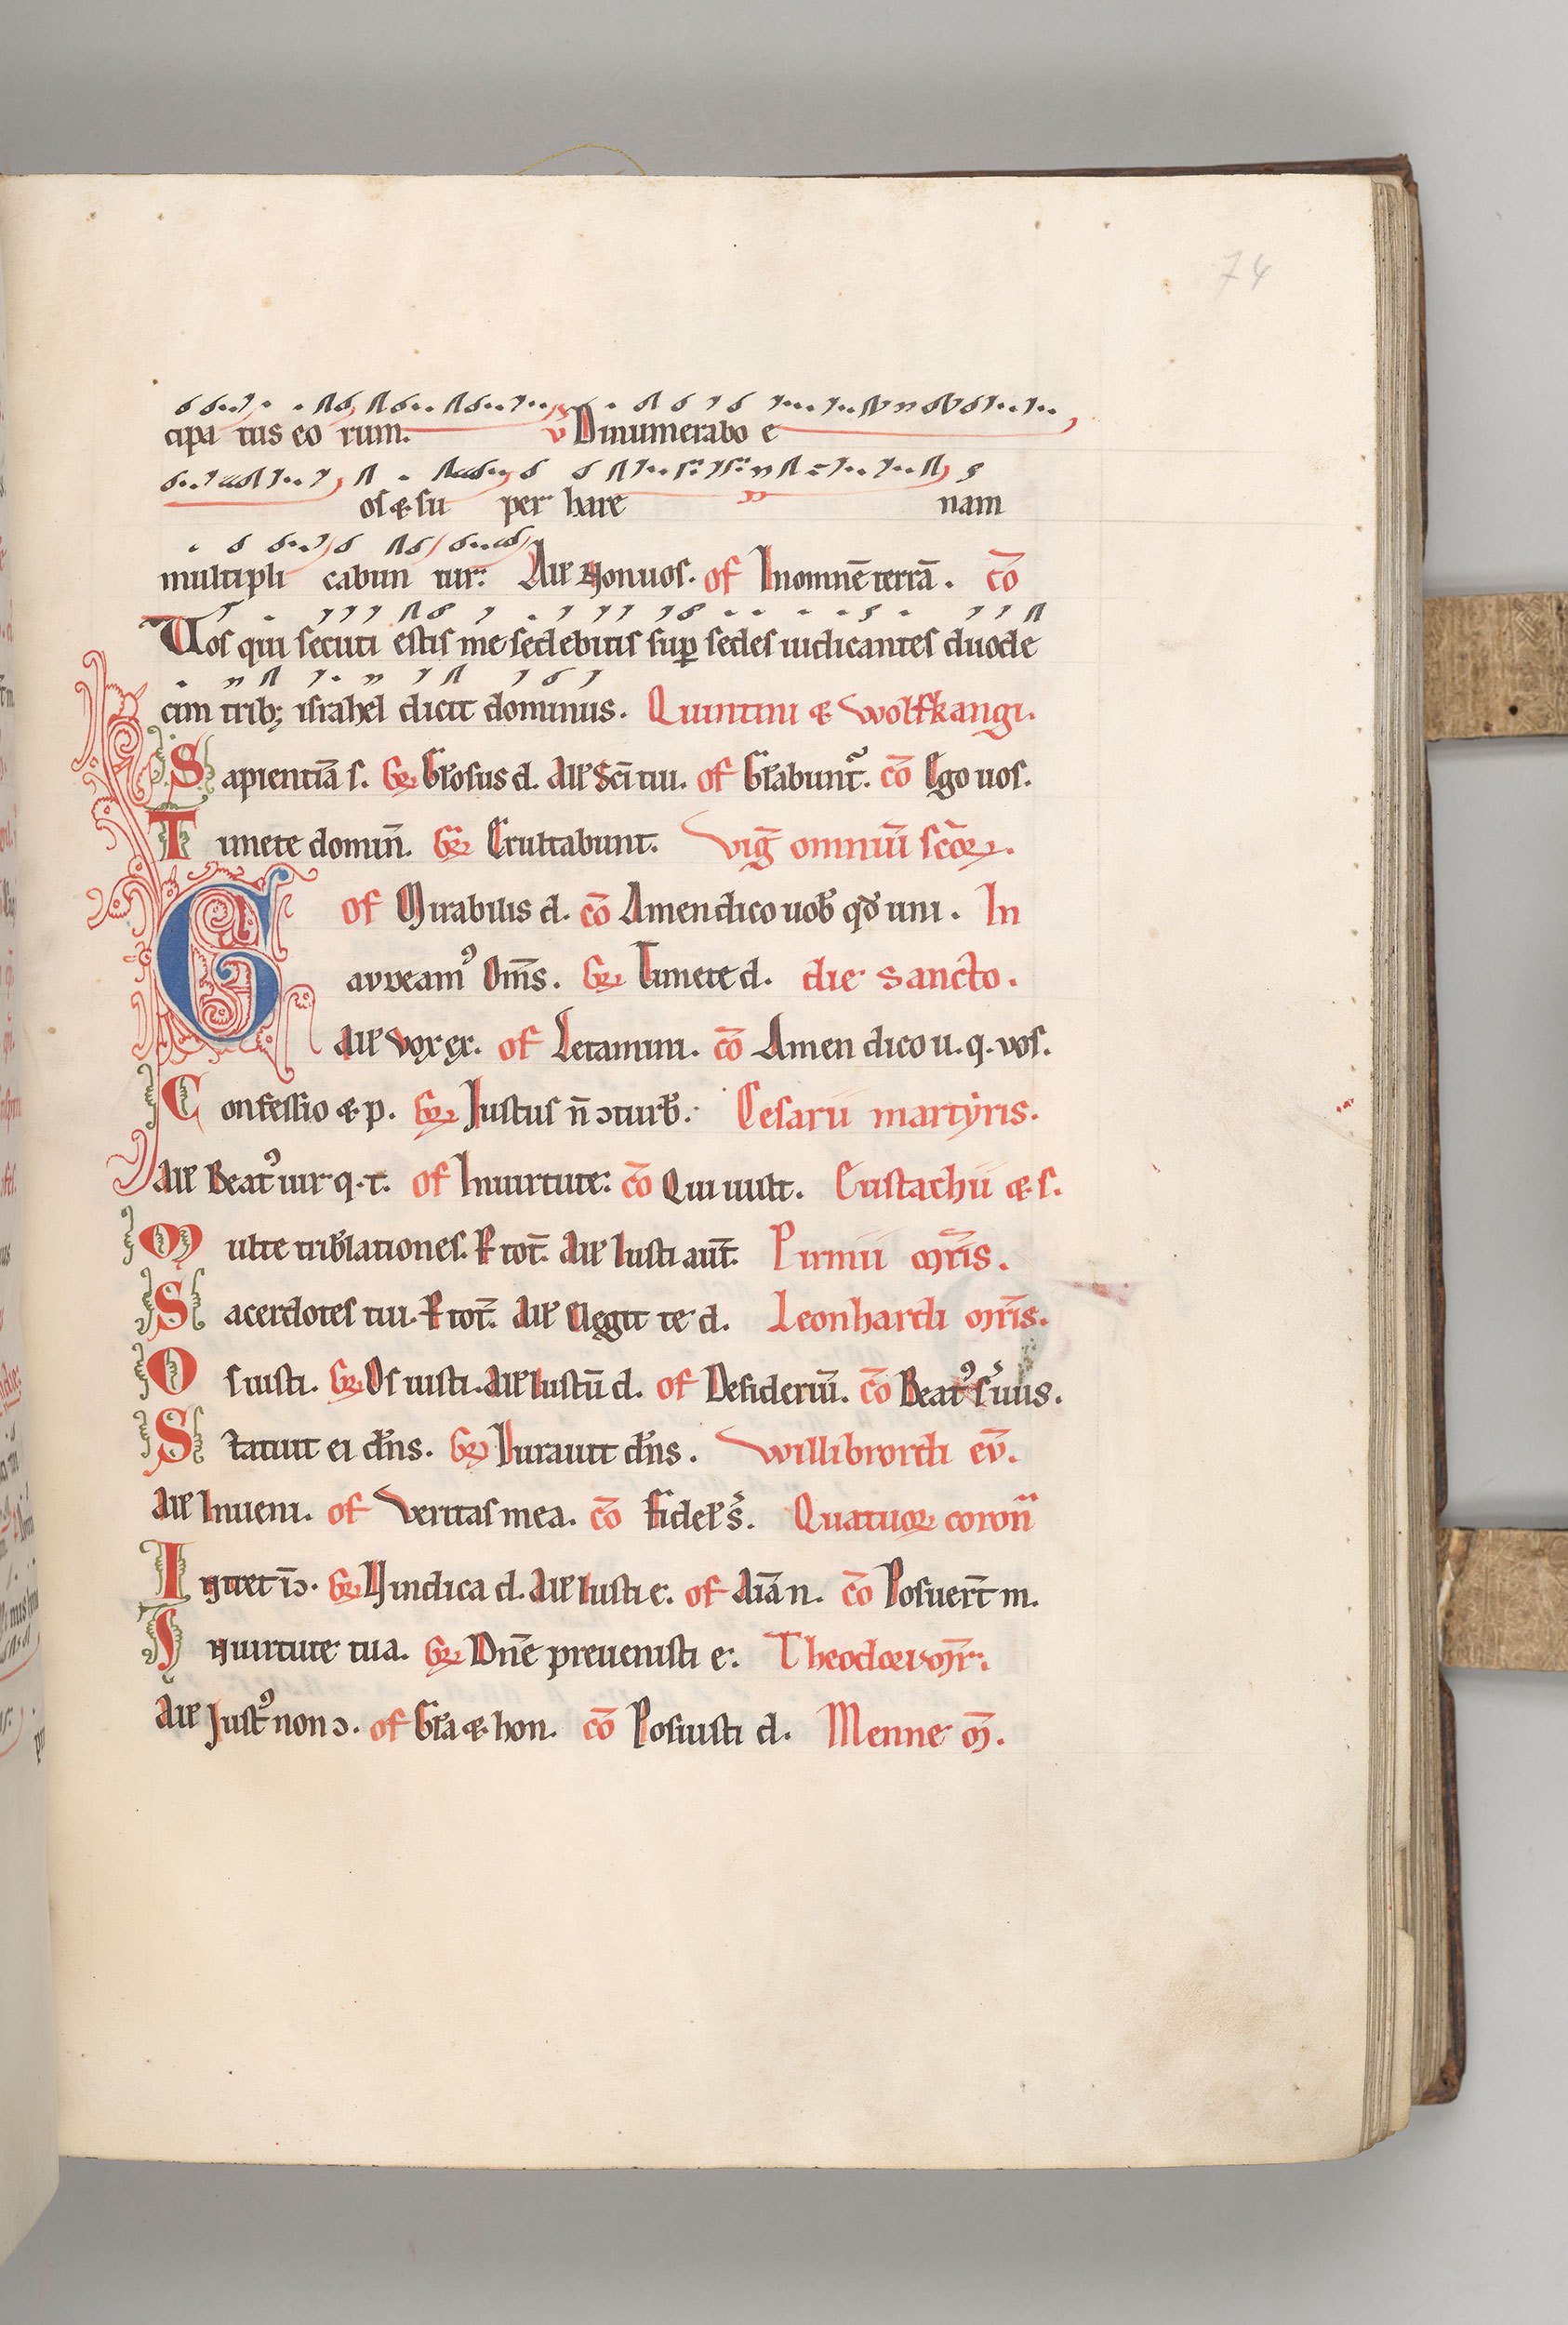 74
cipa tus eo rum. v Dinumerabo e
os & su per hare nam
multipli cabun tur: All Non uos. of In omnē terrā. cō
Uos qui secuti estis me sedebitis sup sedes iudicantes duode
cim trib; israhel dicit dominus. Quintini & Wolfkangi.
Sapientiā s. Gr Gl'osus d. All Sc̄i tui. of Gl'abunt. cō Ego uos.
Timete domin̄. Gr Eruttabunt. Viḡ omniū scōr.
of Mirabilis d. cō Amen dico uob qd uni. In
Gaudeam9 Om̄s. Gr Timete d. die sancto.
All Vox ex. of Letamini. cō Amen dico u. q. vos.
Confessio & p. Gr Justus n̄ ɔturb. Cesarii martyris.
All Beat9 uir q. t. of In uirtute: cō Qui uult. Eustachii & s.
Multe triblationes. R tot̄. All Iusti aut̄. Pirmii mr̄is.
Sacerdotes tui. R tot̄. All Elegit te d. Leonhardi mr̄is.
Os iusti. Gr Os iusti. All Iustū d. of Desideriū. cō Beat9 s'uus.
Statuit ei dn̄s. Gr Iurauit dn̄s. Willibrordi ev̄.
All Inueni. of Veritas mea. cō Fidel s'. Quatuor coron̄
Intret ī ɔ. Gr Vindica d. All Iusti e. of Aīa n. cō Posuer̄t m.
In uirtute tua. Gr Dn̄e preuenisti e. Theodori mr̄:
All Just9 non ɔ. of Gl'a & hon. cō Posuisti d. Menne m̄.